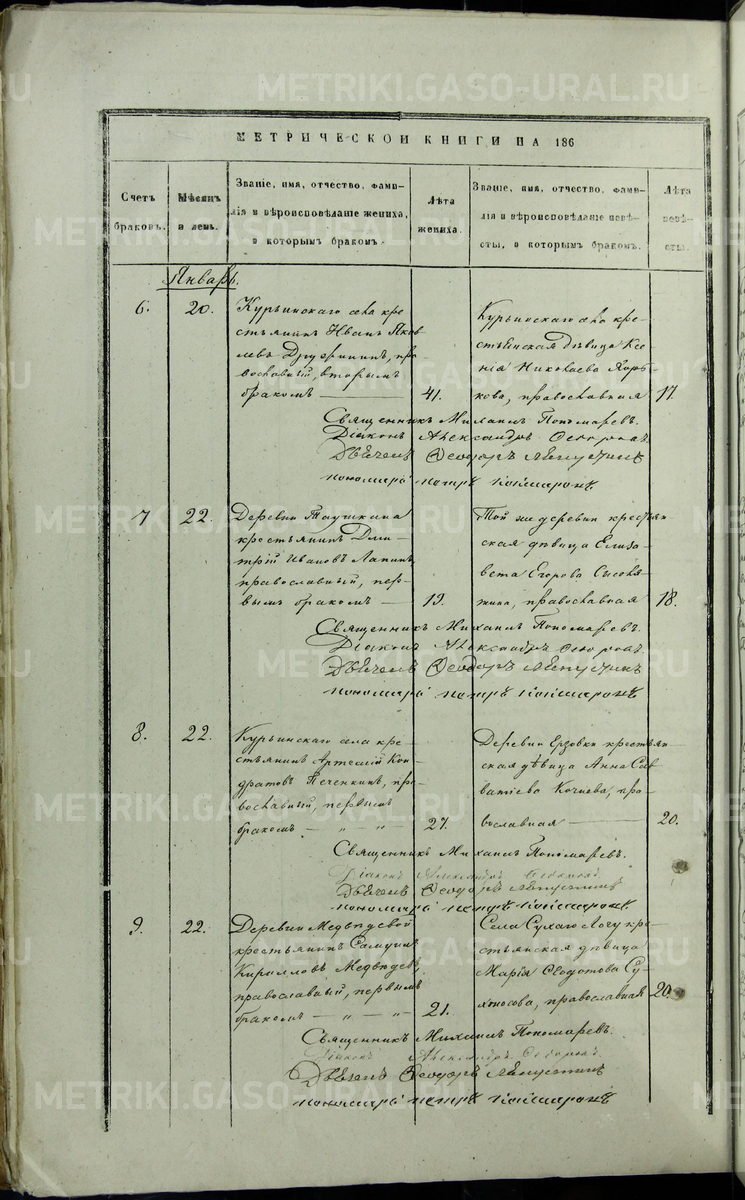 МЕТРИЧЕСКОЙ КНИГИ НА 186
Счетъ браковъ.
Мѣсяцъ и день.
Званіе, имя, отчество, фами-
лія и вѣроисповѣданіе жениха,
и которымъ бракомъ.
Лѣта жениха.
Званіе, имя, отчество, фами-
лія и вѣроисповѣданіе невѣ-
сты, и которымъ бракомъ.
Лѣта невѣ-
сты.
Январь.
6. 20.
Курьинскаго села кре-
стьянинъ Иванъ Яков
левъ, пра-
вославный, вторымъ
бракомъ — 41.
Курьинскаго села кре-
стьянская дѣвица Ксе-
нія Николаева
православная 17.
Священникъ Михаилъ Пономаревъ.
Діаконъ Александръ
Дьячекъ Ѳеодоръ
пономарь петръ
7 22.
Деревни Таушкана
крестьянинъ Дми-
трій Ивановъ Лапинъ,
православный, пер-
вымъ бракомъ — 19.
Той же деревни крестьян
ская дѣвица Елиза-
вета Егорова
православная 18.
Священникъ Михаилъ Пономаревъ.
Діаконъ Александръ
Дьячекъ Ѳеодоръ
пономарь петръ
8. 22.
Курьинскаго села кре-
стьянинъ Артемій Кон
дратовъ Печенкинъ, пра-
вославный, первымъ
бракомъ — „ — „ — 27.
Деревни Ерзовки крестьян
ская дѣвица Анна Сав
ватіева Кочнева, пра-
вославная — 20.
Священникъ Михаилъ Пономаревъ.
Діаконъ Александръ
Дьячекъ Ѳеодоръ
пономарь петръ
9. 22.
Деревни Медвѣдевой
крестьянинъ Самуилъ
Кирилловъ Медвѣдевъ,
православный, первымъ
бракомъ — „ — „ 21.
Села Сухаго логу кре-
стьянская дѣвица
Марія Ѳедотова Су-
хоносова, православная 20.
Священникъ Михаилъ Пономаревъ.
Діаконъ Александръ
Дьячекъ Ѳеодоръ
пономарь петръ
METRIKI.GASO-URAL.RU